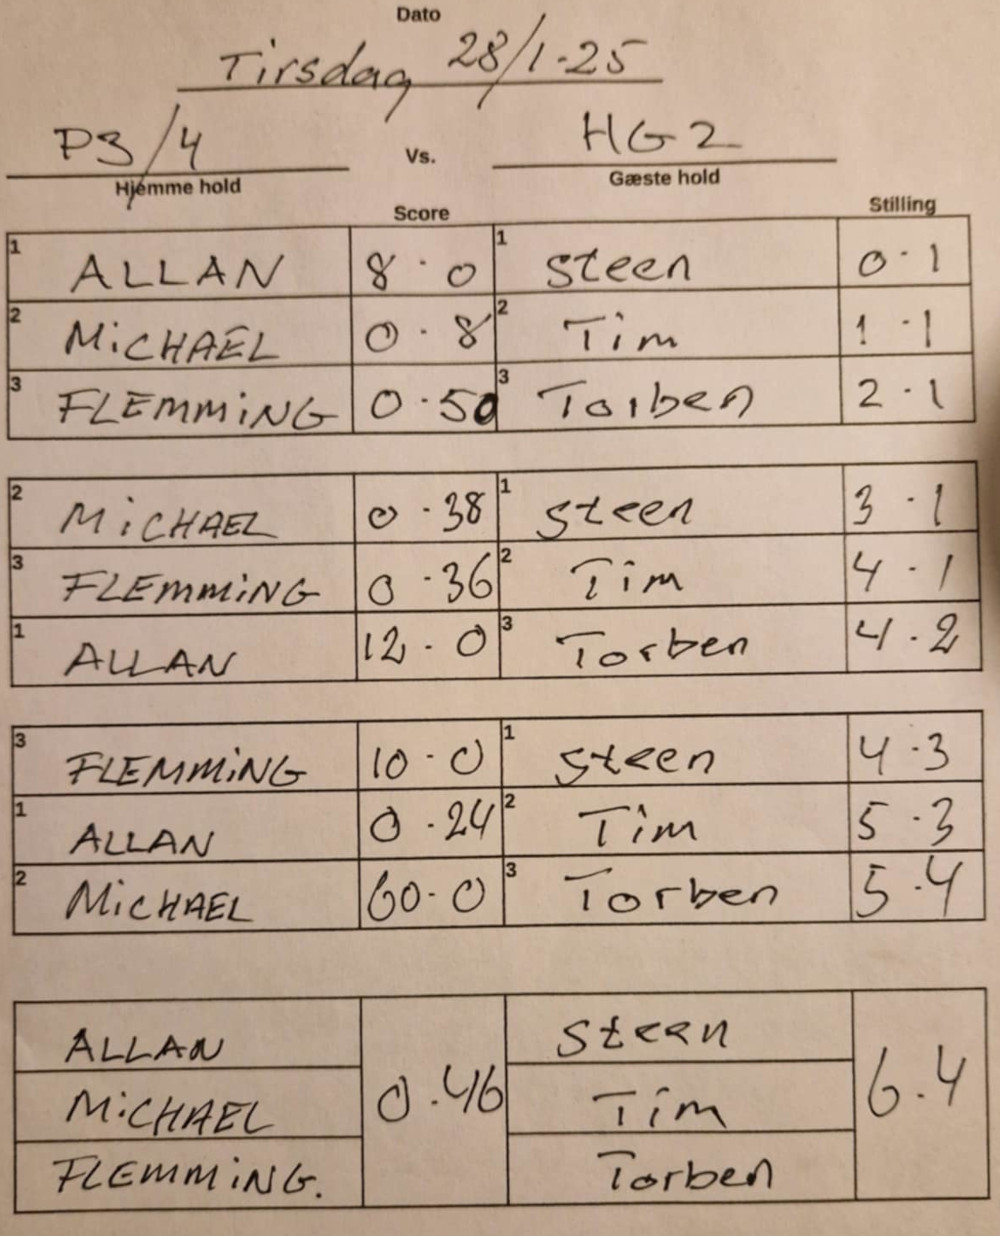 Dato
Tirsdag 28/1-25
P3/4 Vs. HG2
Hjemme hold Gæste hold
Score Stilling
1 ALLAN 8 · 0 1 Steen 0 · 1
2 MiCHAEL 0 · 8 2 Tim 1 · 1
3 FLEMMING 0 · 50 3 Torben 2 · 1
2 MiCHAEL 0 · 38 1 Steen 3 · 1
3 FLEMMiNG 0 · 36 2 Tim 4 · 1
1 ALLAN 12 · 0 3 Torben 4 · 2
3 FLEMMiNG 10 · 0 1 Steen 4 · 3
1 ALLAN 0 · 24 2 Tim 5 · 3
2 MiCHAEL 60 · 0 3 Torben 5 · 4
ALLAN Steen
MiCHAEL 0 · 46 Tim 6 · 4
FLEMMiNG. Torben